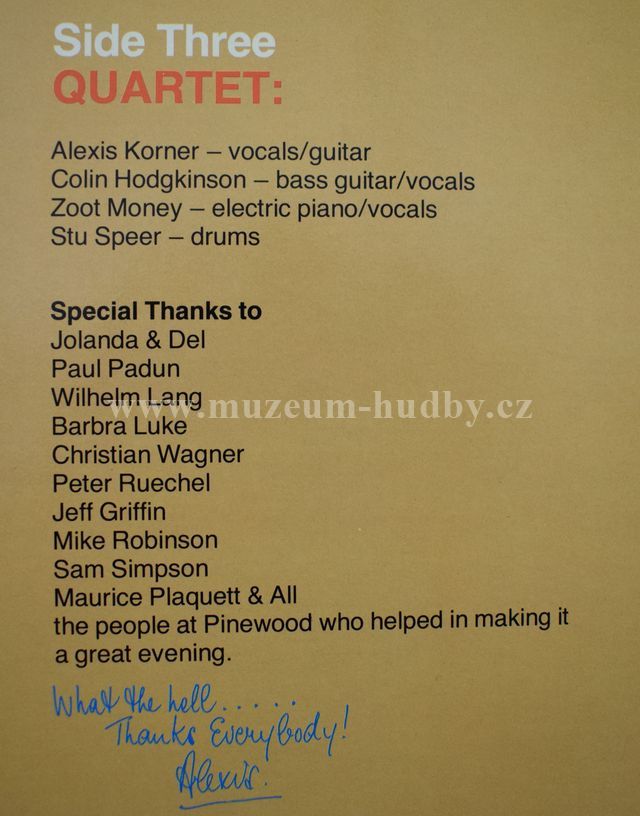 Side Three
QUARTET:
Alexis Korner – vocals/guitar
Colin Hodgkinson – bass guitar/vocals
Zoot Money – electric piano/vocals
Stu Speer – drums
Special Thanks to
Jolanda & Del
Paul Padun
Wilhelm Lang
www.muzeum-hudby.cz
Barbra Luke
Christian Wagner
Peter Ruechel
Jeff Griffin
Mike Robinson
Sam Simpson
Maurice Plaquett & All
the people at Pinewood who helped in making it
a great evening.
What the hell.....
Thanks Everybody!
Alexis.